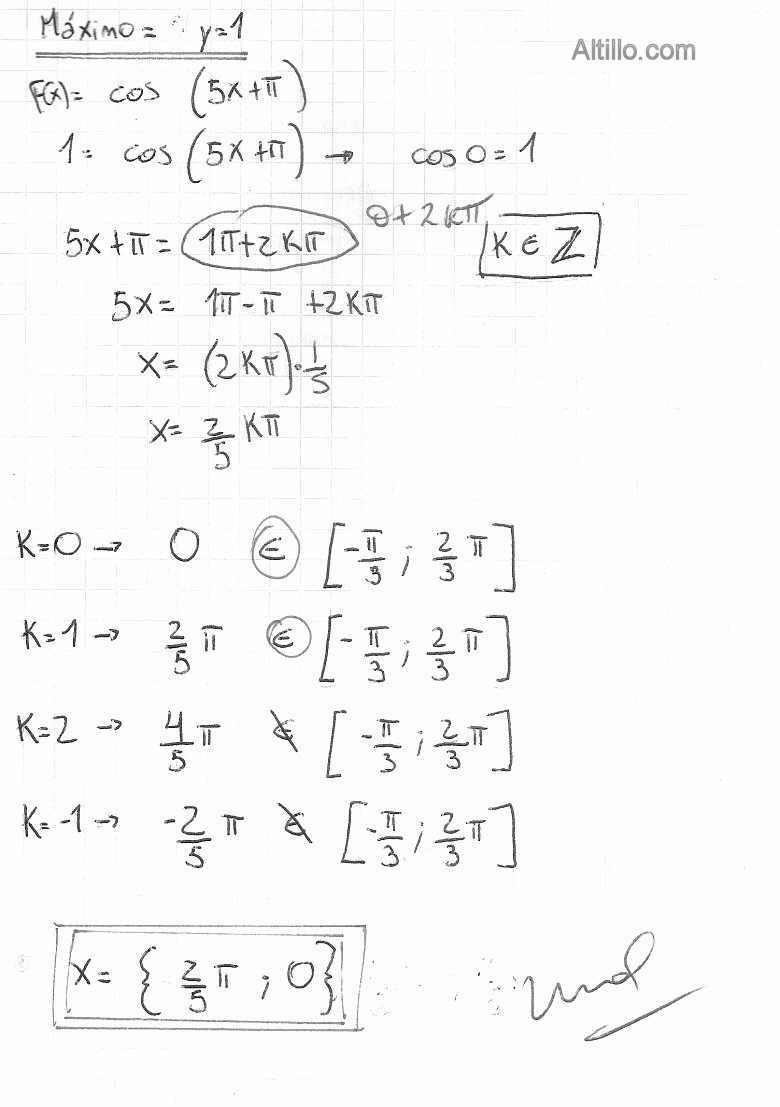 Máximo = y=1
Altillo.com
F(x)= cos (5x+π)
1= cos (5x+π) → cos 0 = 1
0+2kπ
5x+π = 1π+2kπ K ∈ ℤ
5x = 1π-π +2kπ
x= (2kπ)·1/5
x= 2/5 kπ
K=0 → 0 ∈ [-π/3 ; 2/3 π]
K=1 → 2/5 π ∈ [-π/3 ; 2/3 π]
K=2 → 4/5 π ∉ [-π/3 ; 2/3 π]
K=-1 → -2/5 π ∉ [-π/3 ; 2/3 π]
x= { 2/5 π ; 0}